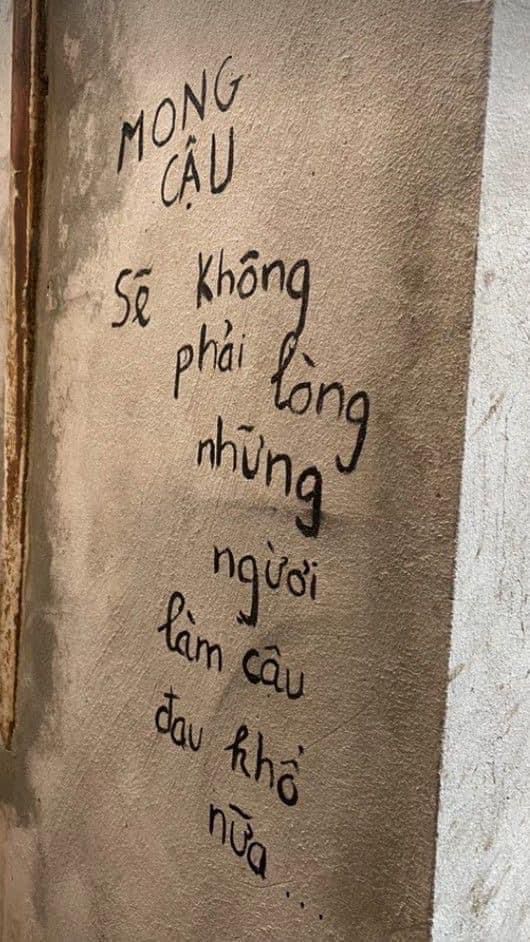 MONG
CẬU
Sẽ không
phải lòng
những
người
làm cậu
đau khổ
nữa...